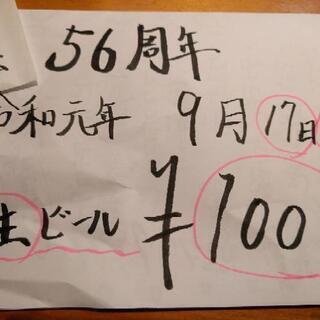 56周年
令和元年 9月17日
生ビール ¥100